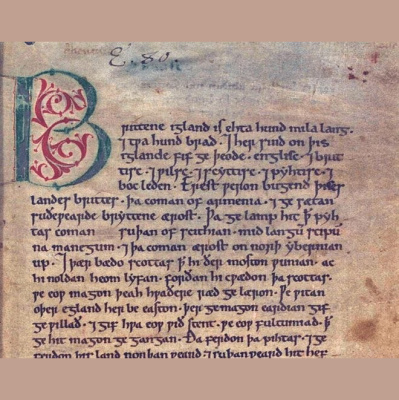 E. 80
Brittene igland is ehta hund mila lang.
⁊ tƿa hund brad. ⁊ her sind on þis
iglande fif ge þeode. englisc. ⁊ brit
tisc. ⁊ ƿilsc. ⁊ scyttisc. ⁊ pyhtisc. ⁊
boc leden. Erest ƿeron bugend þises
landes brittes. þa coman of armenia. ⁊ ge satan
suðeƿearde bryttene ærost. Þa ge lamp hit ꝥ pyh
tas coman suþan of scithian. mid langū scipū
na manegum. ⁊ þa coman ærost on norþ ybernian
up. ⁊ þær bædo scottas ꝥ hi ðer moston ƿunian. ac
hi noldan heom lyfan. forðan hi cƿædon þa scottas.
ƿe eoƿ magon þeah hƿaðere ræd ge læron. Ƿe ƿitan
oþer egland her be easton. þer ge magon eardian gif
ge ƿillað. ⁊ gif hƿa eoƿ ƿið stent. ƿe eoƿ fultumiað. ꝥ
ge hit magon ge gangan. Ða ferdon þa pihtas. ⁊ ge
ferdon þis land norþan ƿeard ⁊ suþan ƿeard hit hef